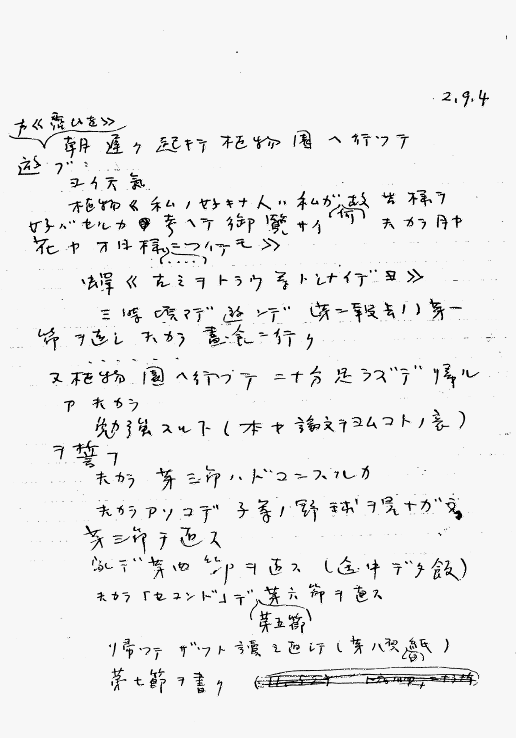 2.9.4
朝遅ク起キテ植物園ヘ行ツテ
遊ブ:
ヨイ天気
植物《私ノ好キナ人ハ私ガ何故皆様ヲ
好バセルカ考ヘテ御覧サイ 夫カラ月ヤ
花ヤオ日様ニツイテモ》
三時頃マデ遊ンデ(第二報告ノ)第一
節ヲ直シ夫カラ昼食ニ行ク
又植物園ヘ行ツテ二十分足ラズデ帰ル
夫カラ
勉強スルト(本ヤ論文ヲヨムコトノ意)
ヲ誓フ
夫カラ第三節ハドコンスルカ
夫カラアソコデ子等ノ野球ヲ見ナガラ
第三節ヲ直ス
家デ第四節ヲ直ス(途中デ夕飯)
夫カラ「セコンド」デ第六節ヲ直ス
第五節
帰ツテザツト讀ミ返シ
第七節ヲ書ク